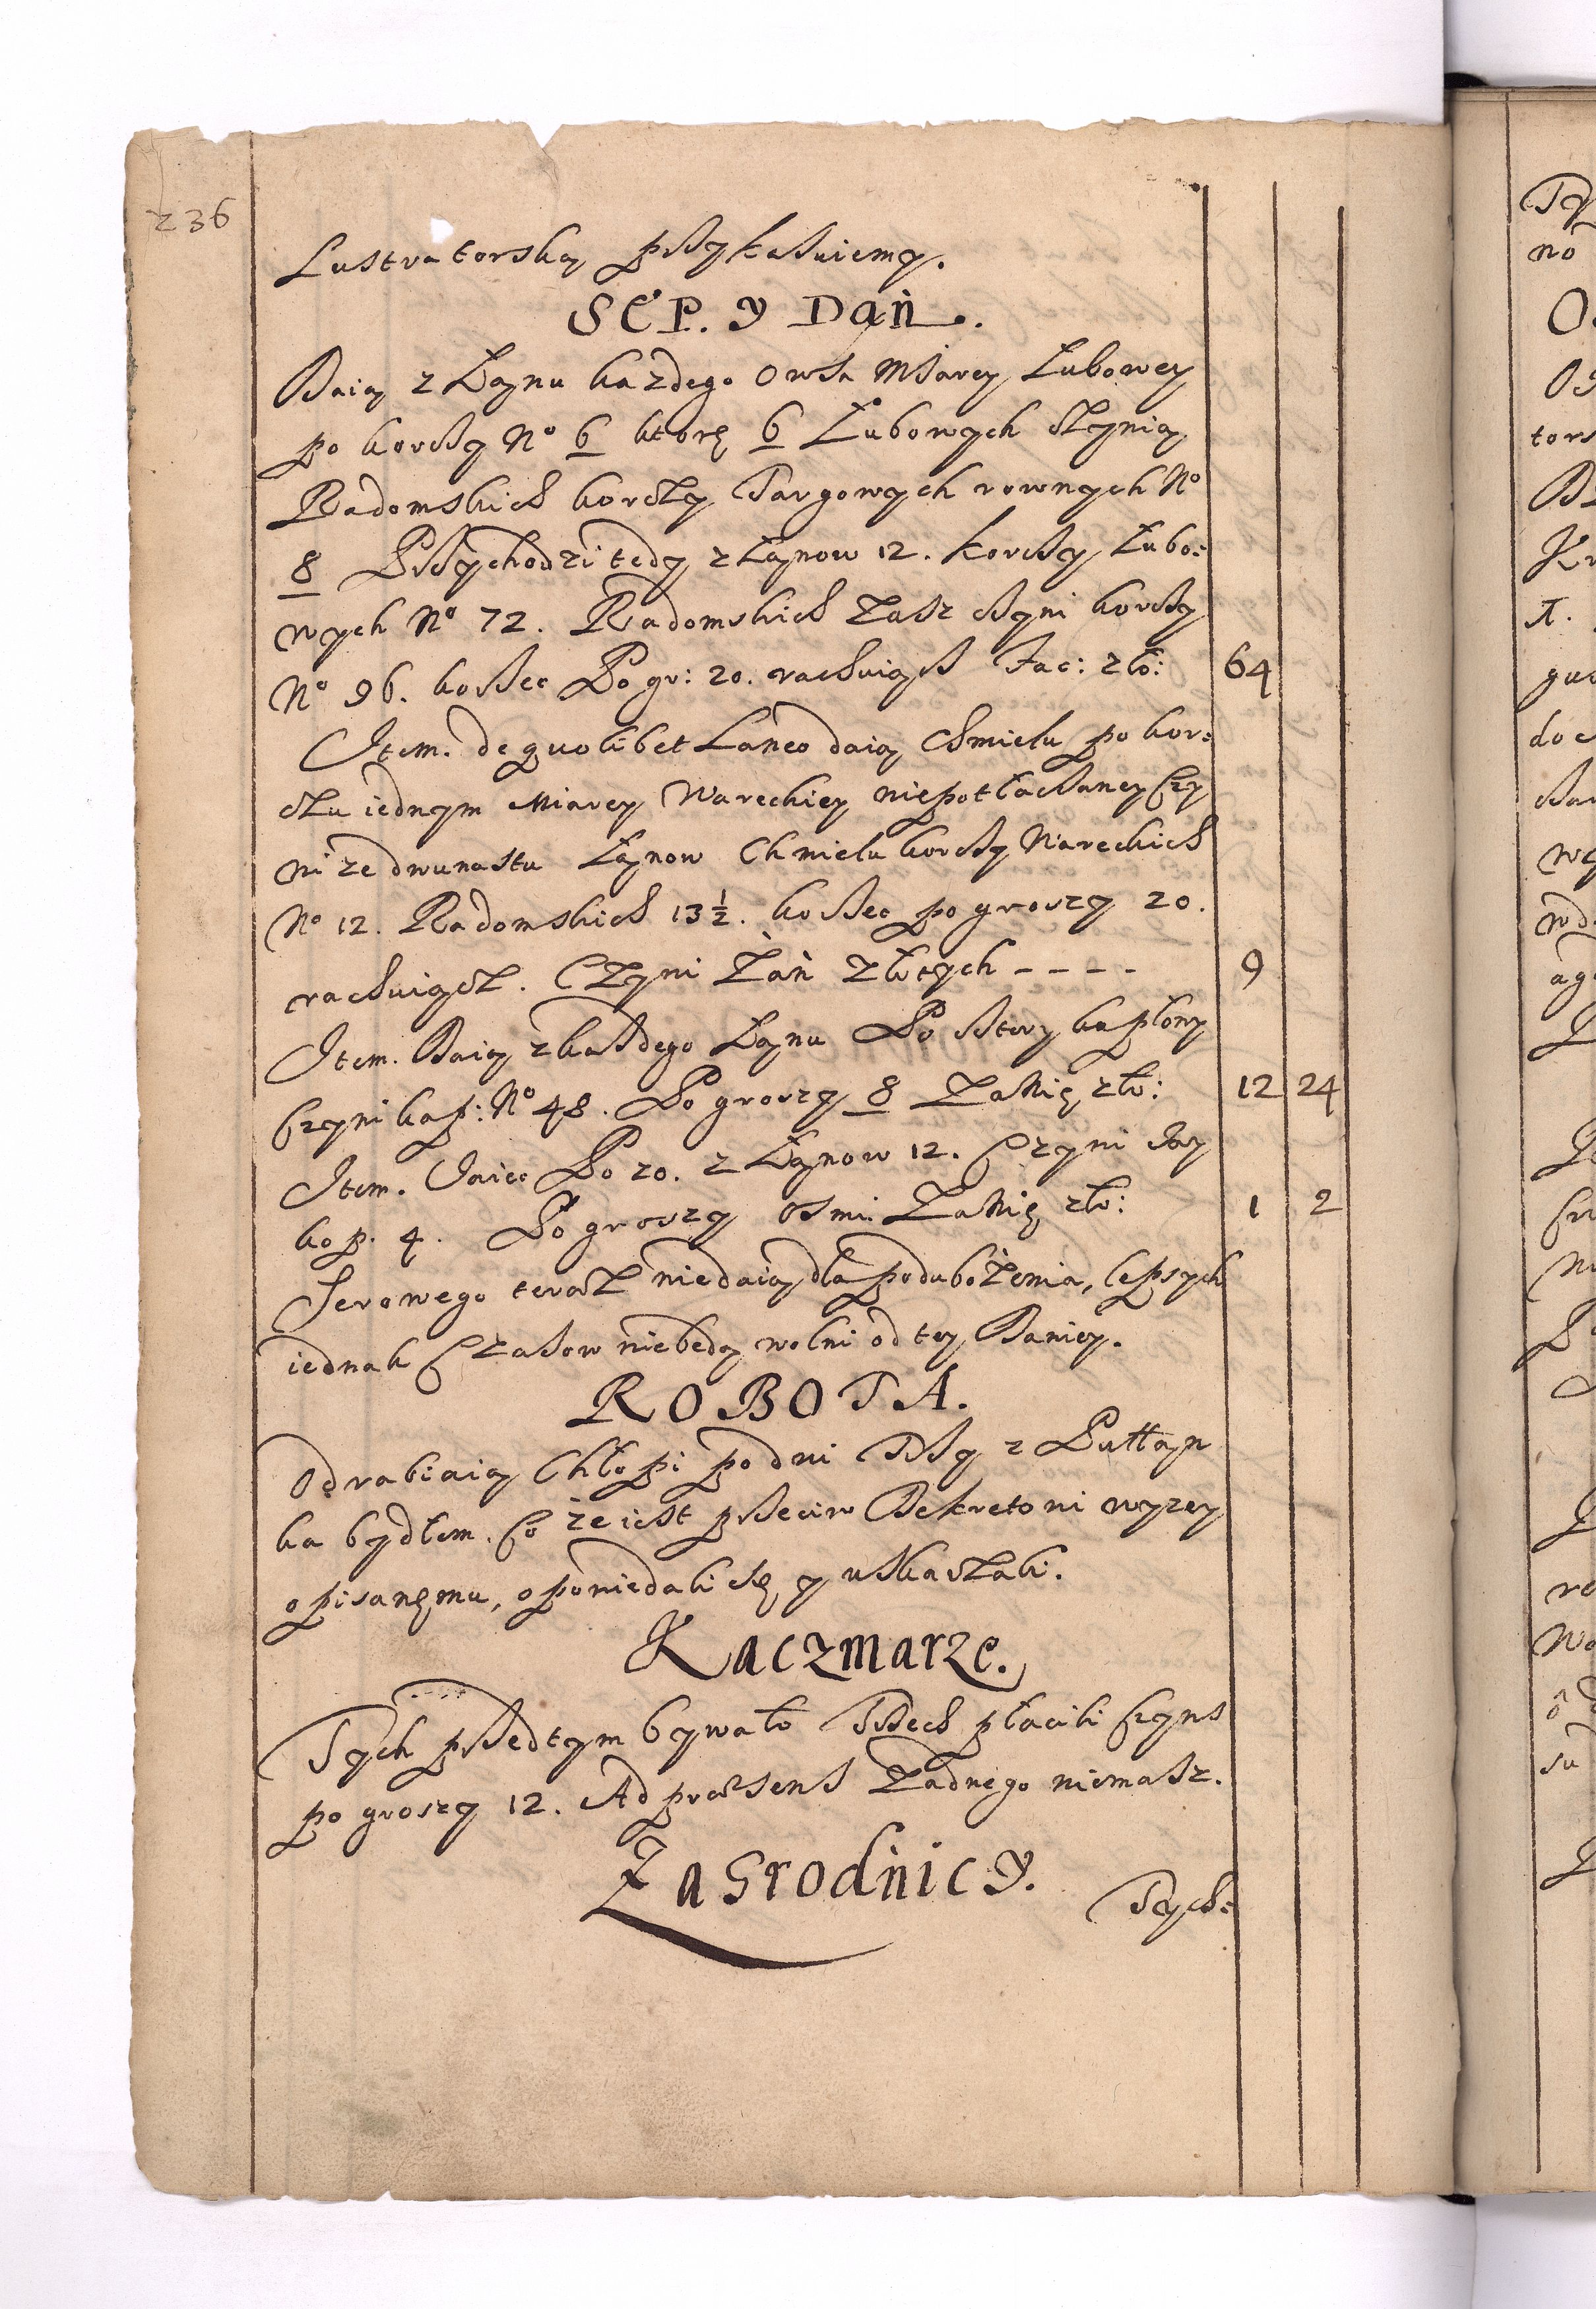 236
Lustratorską przykazuiemy.
SEP. Y Dań.
Daią z Łanu kazdego Owsa Miarey Łubowey
po korcy No 6 ktore 6 Łubowych czynią
Radomskich korczy Targowych rownych No
8 Przychodzi tedy z Łanow 12. korcy Łubo:
wych No 72. Radomskich zasz czyni korcy
No 96. korzec Po gr: 20. rachuiąc Fac: zło: 64
Item. de quolibet Laneo daią Chmielu po kor:
czu iednym Miarey Wareckiey niepotłaczaney Czy
ni ze dwunastu Łanow Chmielu korcy Wareckich
No 12. Radomskich 13½. korzec po groszy 20.
rachuiącz. Czyni Zań Złotych - - - - 9
Item. Daią z kazdego Łanu Po cztery kapłony
Czyni kap: No 48. Po groszy 8 Za nie zło: 12 24
Item. Jaiec Po 20. z Łanow 12. Czyni Jay
kop. 4. Po groszy osmi Za nie zło: 1 2
Serowego teraz niedaią dla podubożenia, lepszych
iednak Czasow niebędą wolni od tey Daniey.
ROBOTA.
Odrabiaią Chłopi po dni Trzy z Pułłan
ka bydłem. Co że iest przeciw Dekretowi wyzey
opisanemu, opowiedali się y uskarzali.
Kaczmarze.
Tych przedtym bywało Trzech płacili Czyns
po groszy 12. Ad præsens Zadnego niemasz.
Zagrodnicy.
Tych:
64